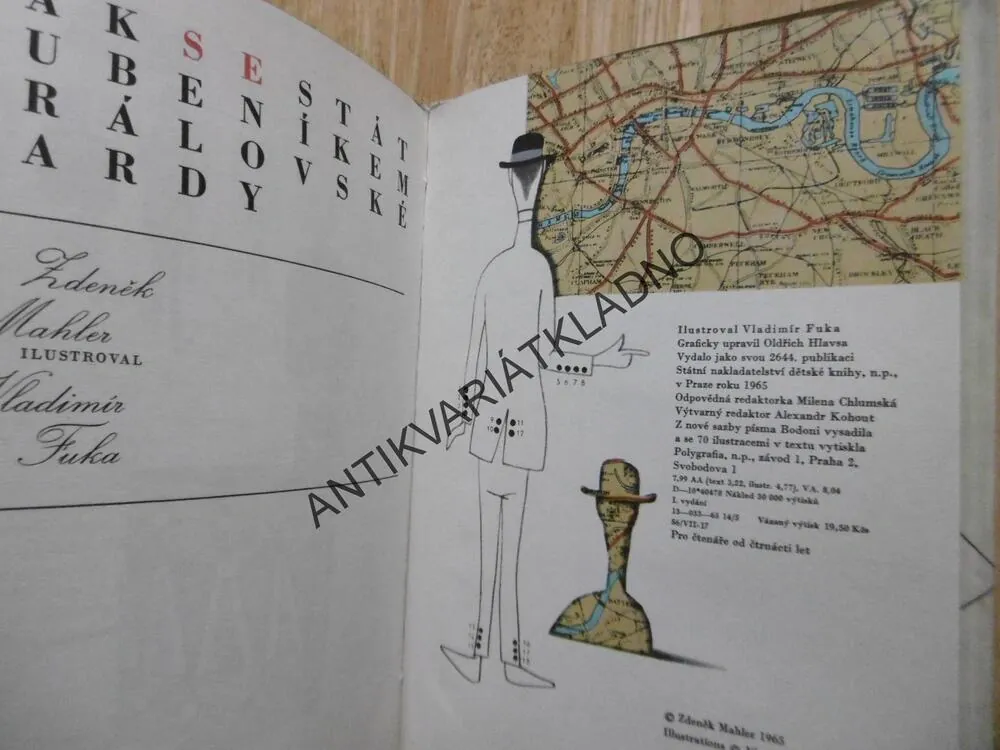 AK SE STÁT
UBENÍKEM
RÁLOVSKÉ
ARDY
Zdeněk
Mahler
ILUSTROVAL
Vladimír
Fuka
STEPNEY
BERMONDSEY
MILLWALL
WALWORTH
DEPTFORD
KENNINGTON
NEW CROSS
BLACK HEATH
PECKHAM
PECKHAM
CLAPHAM
5 6 7 8
9 11
10 17
ANTIKVARIÁTKLADNO
Ilustroval Vladimír Fuka
Graficky upravil Oldřich Hlavsa
Vydalo jako svou 2644. publikaci
Státní nakladatelství dětské knihy, n.p.,
v Praze roku 1965
Odpovědná redaktorka Milena Chlumská
Výtvarný redaktor Alexandr Kohout
Z nové sazby písma Bodoni vysadila
a se 70 ilustracemi v textu vytiskla
Polygrafia, n.p., závod 1, Praha 2,
Svobodova 1
7,99 AA (text 3,22, ilustr. 4,77), VA. 8,04
D—10*40478 Náklad 30 000 výtisků
I. vydání
13—033—65 14/5 Vázaný výtisk 19,50 Kčs
56/VII-17
Pro čtenáře od čtrnácti let
© Zdeněk Mahler 1965
Illustrations ©